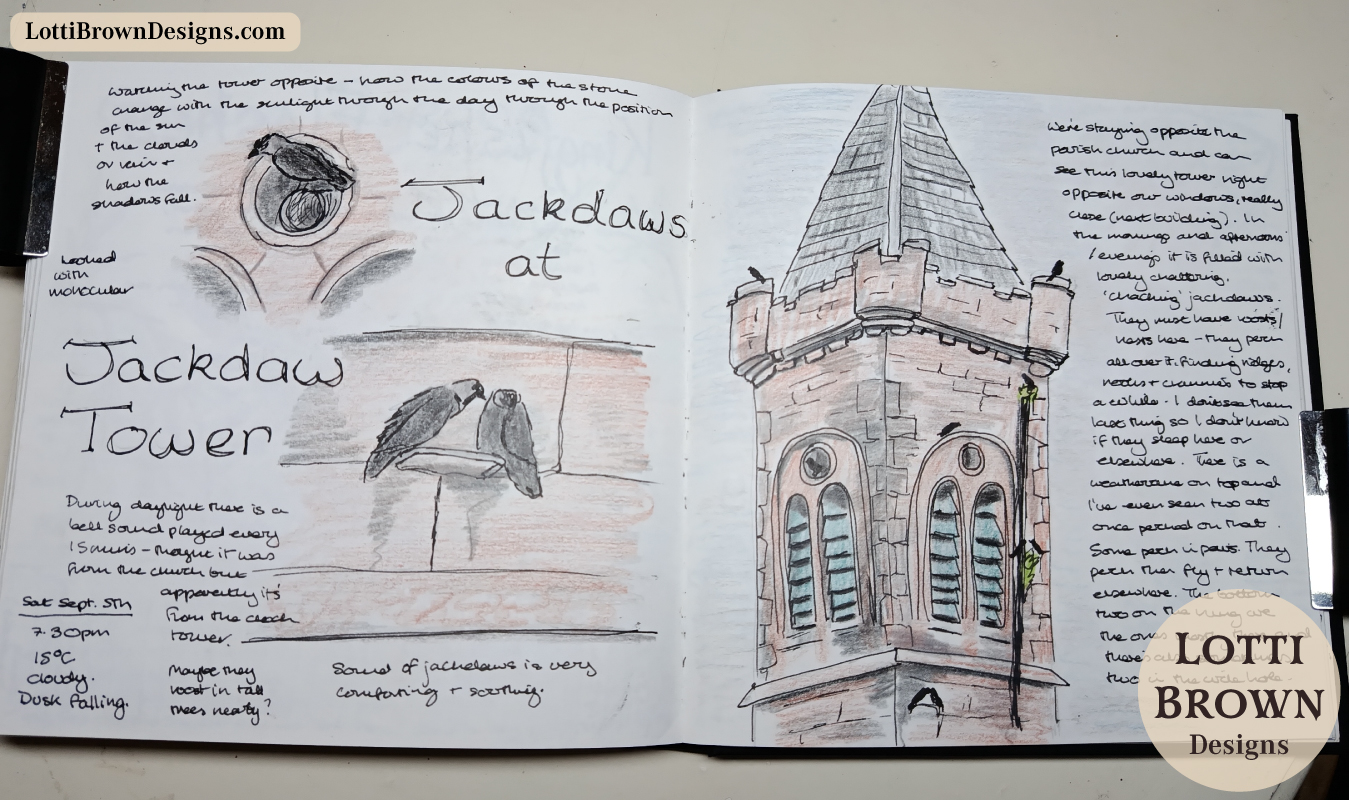 LottiBrownDesigns.com
watching the tower opposite - how the colours of the stone
change with the sunlight through the day through the position
of the sun
+ the clouds
or rain +
how the
shadows fall.
Looked
with
monocular
Jackdaws
at
Jackdaw
Tower
During daylight there is a
bell sound played every
15 mins - thought it was
from the church but
apparently it's
from the clock
tower.
Sat Sept. 5th
7.30pm
15°C
cloudy.
Dusk falling.
Maybe they
roost in tall
trees nearby?
Sound of jackdaws is very
comforting + soothing.
We're staying opposite the
parish church and can
see this lovely tower right
opposite our windows, really
close (next building). In
the mornings and afternoons
/evenings it is filled with
lovely chattering,
'chacking' jackdaws.
They must have roosts/
nests here - they perch
all over it. Finding ridges,
nooks + crannies to stop
a while. I don't see them
last thing so I don't know
if they sleep here or
elsewhere. There is a
weathervane on top and
I've even seen two at
once perched on that.
Some perch in pairs. They
perch then fly + return
elsewhere. The bottom
two on the thing are
the ones
there's
two in the circle hole.
LOTTI
BROWN
Designs